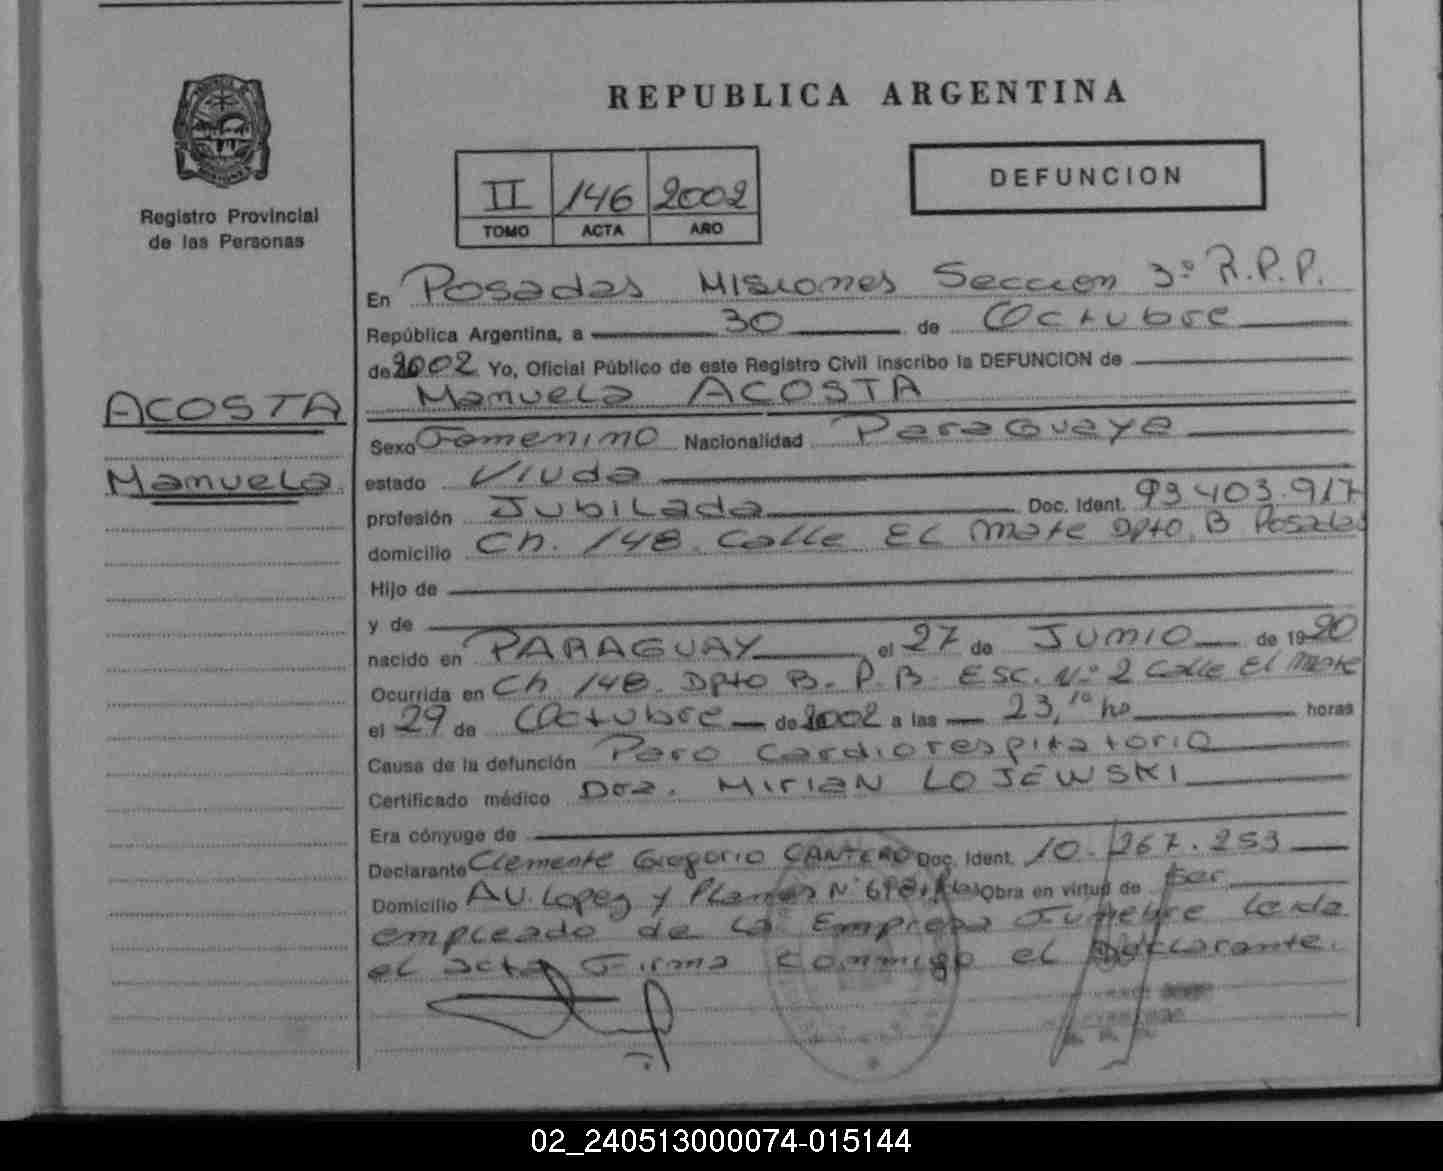 REPUBLICA ARGENTINA
Registro Provincial
de las Personas
II 146 2002
TOMO ACTA AÑO
DEFUNCION
ACOSTA
Manuela
En Posadas Misiones Seccion 3º R.P.P.
República Argentina, a 30 de Octubre
de 2002 Yo, Oficial Público de este Registro Civil inscribo la DEFUNCION de
Manuela ACOSTA
Sexo Femenino Nacionalidad Paraguaya
estado Viuda
profesión Jubilada Doc. Ident. 93.403.917
domicilio Ch. 148. Calle El Mate Dpto. B Posadas
Hijo de
y de
nacido en PARAGUAY el 27 de Junio de 1920
Ocurrida en Ch 148. Dpto B. P.B. ESC. Nº 2 Calle El Mate
el 29 de Octubre de 2002 a las 23,10 hs horas
Causa de la defunción Paro Cardiorespitatorio
Certificado médico Dra. Mirian LOJEWSKI
Era cónyuge de
Declarante Clemente Gregorio CANTERO Doc. Ident. 10.267.253
Domicilio AV. Lopez y Planes Nº Obra en virtud de ser
empleado de la Empresa Funebre Leida
el acta Firma conmigo el Declarante.
02_240513000074-015144